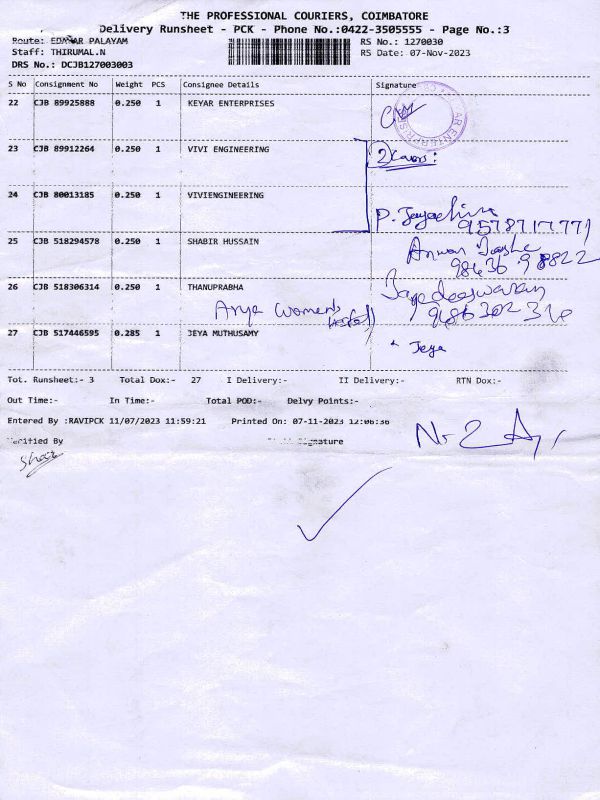 THE PROFESSIONAL COURIERS, COIMBATORE
Delivery Runsheet - PCK - Phone No.:0422-3505555 - Page No.:3
Route: PALAYAM
RS No.: 1270030
Staff: THIRUMAL.N
RS Date: 07-Nov-2023
DRS No.: DCJB127003003
S No Consignment No Weight PCS Consignee Details Signature
22 CJB 89925888 0.250 1 KEYAR ENTERPRISES
23 CJB 89912264 0.250 1 VIVI ENGINEERING
2 Covers:
24 CJB 80013185 0.250 1 VIVIENGINEERING
P.
9578717771
25 CJB 518294578 0.250 1 SHABIR HUSSAIN
Anwar
98436 98822
26 CJB 518306314 0.250 1 THANUPRABHA
Arya Womens
27 CJB 517446595 0.285 1 JEYA MUTHUSAMY
Jeya
Tot. Runsheet:- 3 Total Dox:- 27 I Delivery:- II Delivery:- RTN Dox:-
Out Time:- In Time:- Total POD:- Delvy Points:-
Entered By :RAVIPCK 11/07/2023 11:59:21 Printed On: 07-11-2023 12:06:36
Verified By Signature